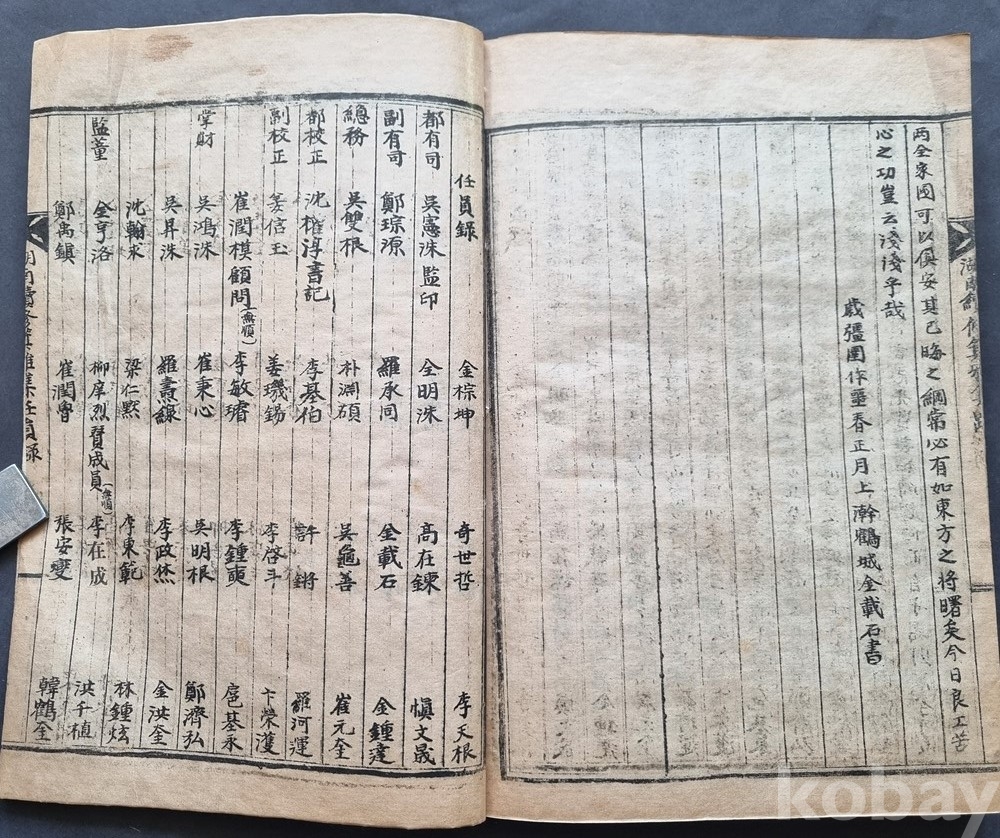 两全家國可以俱安其已晦之綱常必有如東方之將曙矣今日良工苦
心之功豈云淺淺乎哉
歲彊圉作噩春正月上澣鶴城金載石書
任員錄
都有司 吳憲洙 監印 全明洙 高在鍊 愼文晟
金棕坤 奇世哲 李天根
副有司 鄭琮源 羅承同 金載石 金鍾達
總務 吳雙根 朴淵碩 吳龜善 崔元奎
都校正 沈權淳 書記 李基伯 許鏘 羅河運
副校正 姜信玉 姜璣錫 李啓斗 卞榮濩
崔潤模 顧問(無順) 李敏璿 李鍾奭 扈基永
掌財 吳鴻洙 崔秉心 吳明根 鄭濟弘
吳昇洙 羅燾綠 李政烋 金洪奎
沈翰來 梁仁默 李東範 林鍾炫
監董 金亨洛 柳庠烈 贊成員(無順) 李在成 洪千植
鄭禹鎭 崔潤會 張安燮 韓鶴全
任員錄
kobay